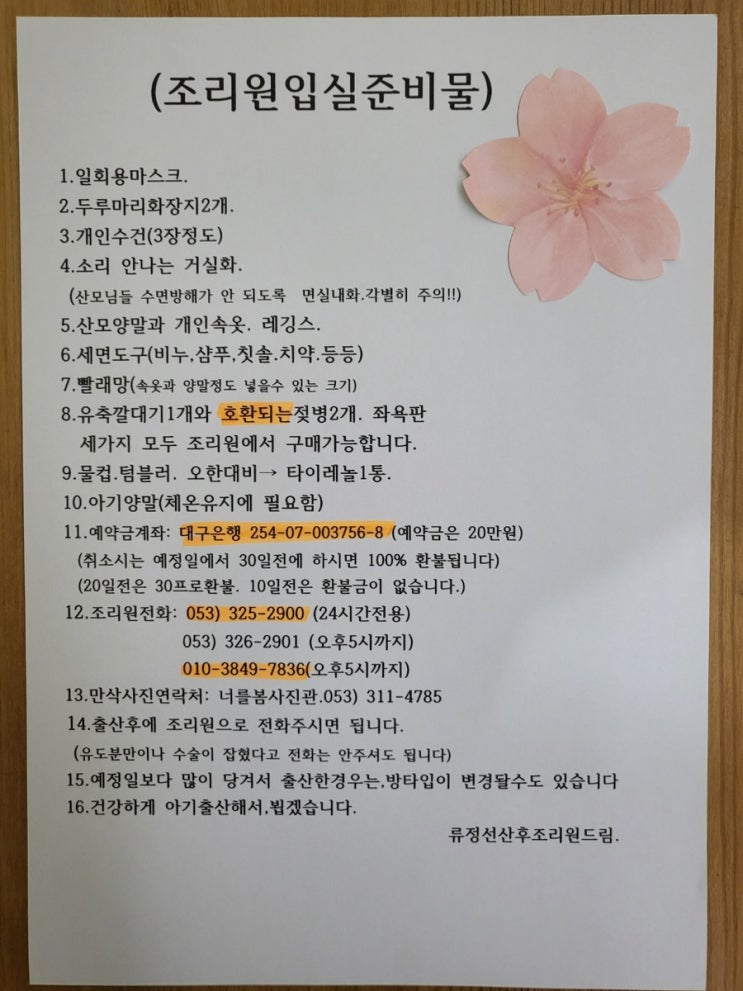 (조리원입실준비물)
1.일회용마스크.
2.두루마리화장지2개.
3.개인수건(3장정도)
4.소리 안나는 거실화.
(산모님들 수면방해가 안 되도록 면실내화.각별히 주의!!)
5.산모양말과 개인속옷. 레깅스.
6.세면도구(비누,샴푸,칫솔.치약.등등)
7.빨래망(속옷과 양말정도 넣을수 있는 크기)
8.유축깔대기1개와 호환되는젖병2개. 좌욕판
세가지 모두 조리원에서 구매가능합니다.
9.물컵.텀블러. 오한대비→ 타이레놀1통.
10.아기양말(체온유지에 필요함)
11.예약금계좌: 대구은행 254-07-003756-8 (예약금은 20만원)
(취소시는 예정일에서 30일전에 하시면 100% 환불됩니다)
(20일전은 30프로환불. 10일전은 환불금이 없습니다.)
12.조리원전화: 053) 325-2900 (24시간전용)
053) 326-2901 (오후5시까지)
010-3849-7836(오후5시까지)
13.만삭사진연락처: 너를봄사진관.053) 311-4785
14.출산후에 조리원으로 전화주시면 됩니다.
(유도분만이나 수술이 잡혔다고 전화는 안주셔도 됩니다)
15.예정일보다 많이 당겨서 출산한경우는,방타입이 변경될수도 있습니다
16.건강하게 아기출산해서,뵙겠습니다.
류정선산후조리원드림.